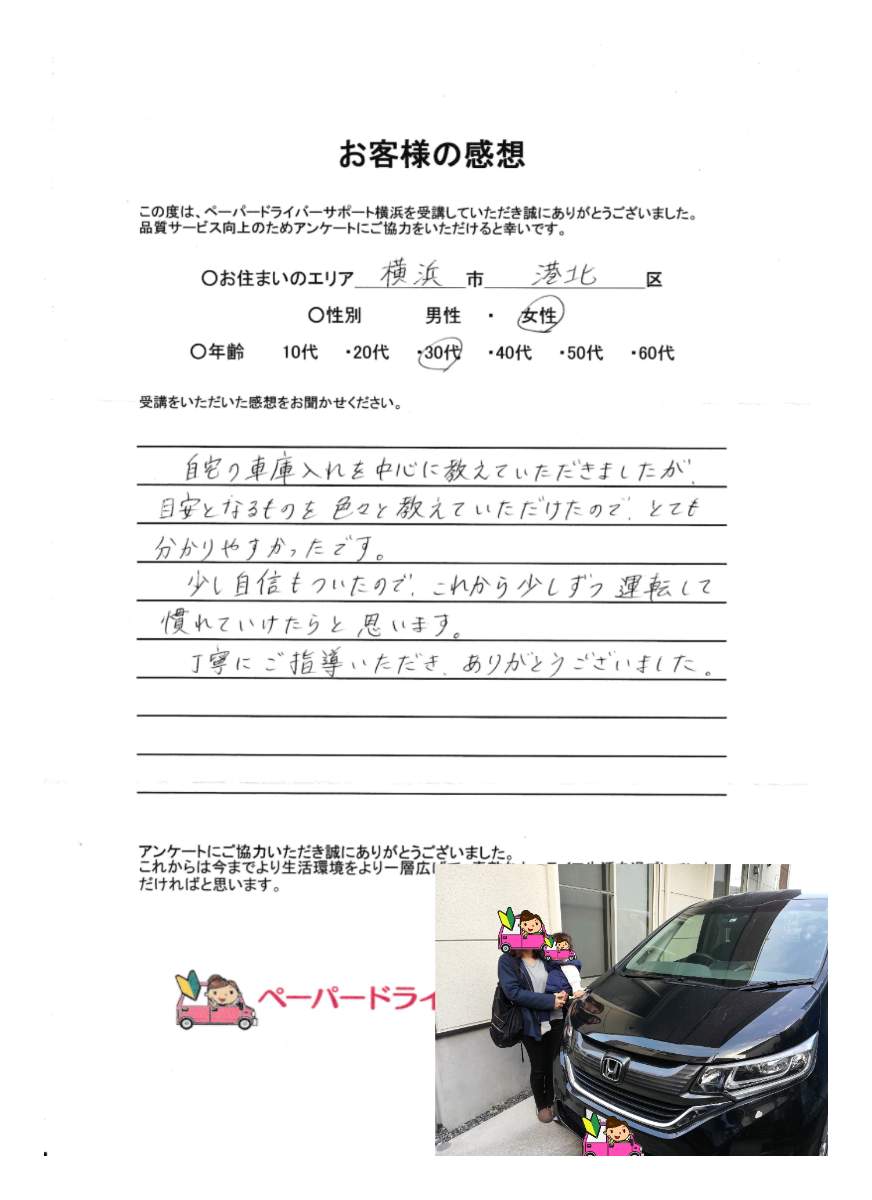 お客様の感想
この度は、ペーパードライバーサポート横浜を受講していただき誠にありがとうございました。
品質サービス向上のためアンケートにご協力をいただけると幸いです。
〇お住まいのエリア 横浜 市 港北 区
〇性別 男性 ・ 女性
〇年齢 10代 ・20代 ・30代 ・40代 ・50代 ・60代
受講をいただいた感想をお聞かせください。
自宅の車庫入れを中心に教えていただきましたが、
目安となるものを色々と教えていただけたので、とても
分かりやすかったです。
少し自信もついたので、これから少しずつ運転して
慣れていけたらと思います。
丁寧にご指導いただき、ありがとうございました。
アンケートにご協力いただき誠にありがとうございました。
これからは今までより生活環境をより一層広げて
だければと思います。
ペーパードライ